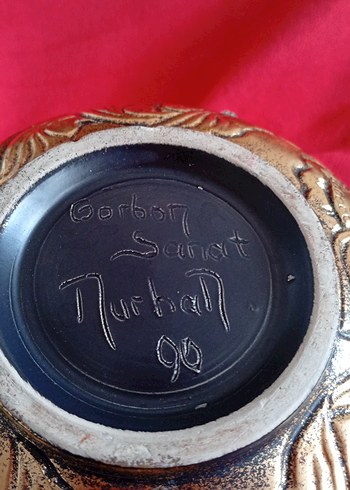 Gorbon
Sanat
Nurhan
90